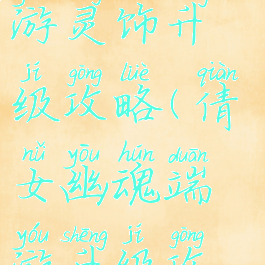 游灵饰升
jí gōng lüè qiàn
级攻略(倩
nǚ yōu hún duān
女幽魂端
yóu shēng jí gōng
游升级攻